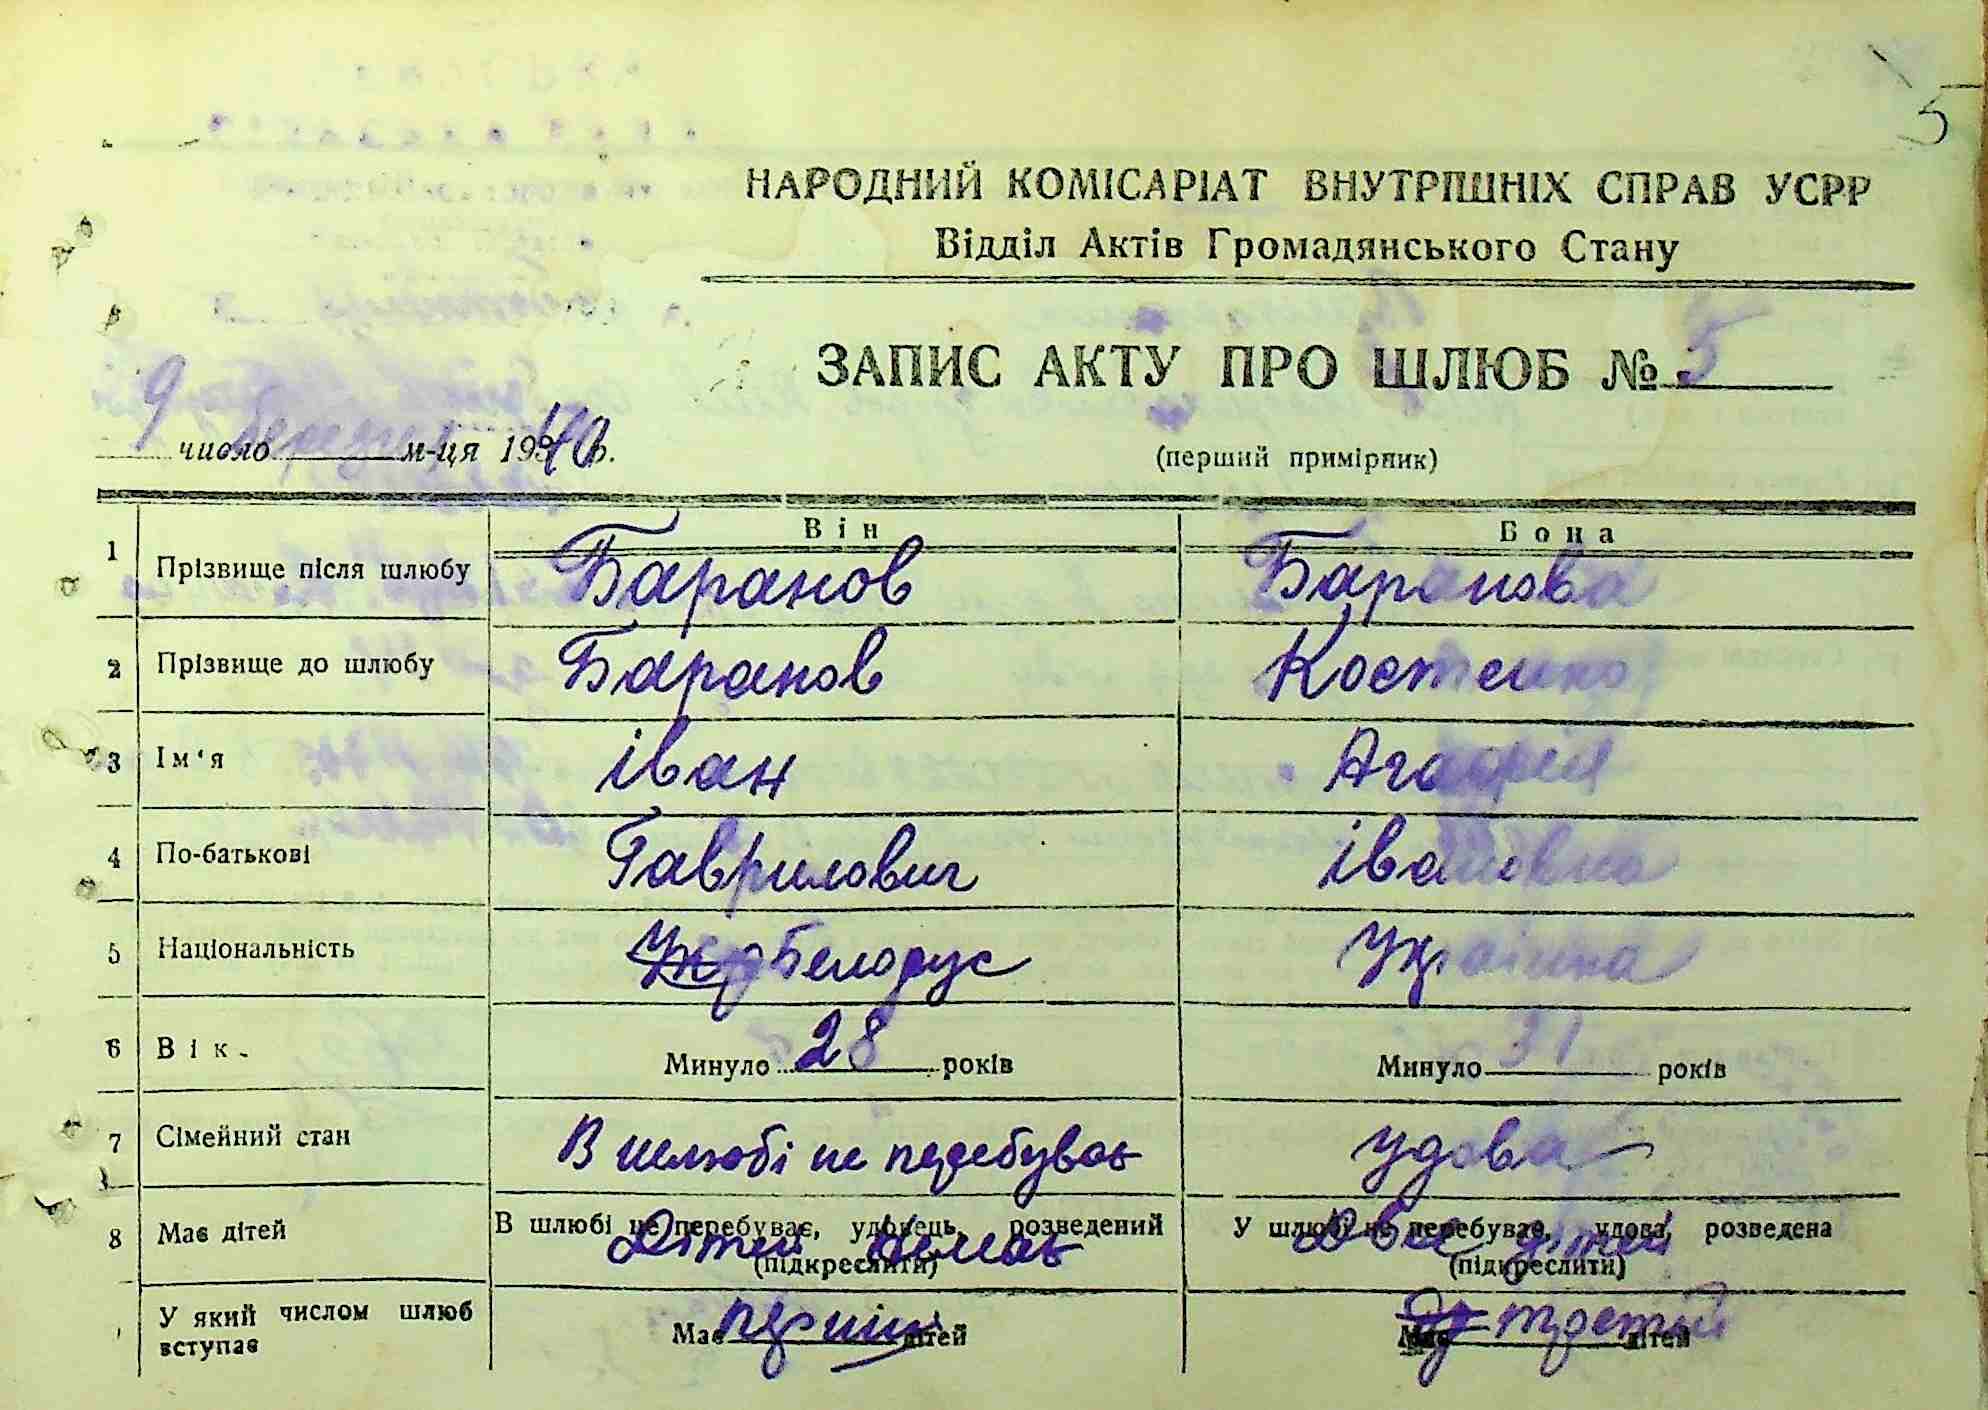 5
НАРОДНИЙ КОМІСАРІАТ ВНУТРІШНІХ СПРАВ УСРР
Відділ Актів Громадянського Стану
ЗАПИС АКТУ ПРО ШЛЮБ № 5
9 число березня м-ця 1940 р.
(перший примірник)
Він Вона
1 Прізвище після шлюбу Баранов Баранова
2 Прізвище до шлюбу Баранов Костенко
3 Ім'я Іван Агафія
4 По-батькові Гаврилович Івановна
5 Національність Белорус Українка
6 Вік. Минуло 28 років Минуло 31 років
7 Сімейний стан В шлюбі не перебуває Удова
8 Має дітей В шлюбі не перебуває, удовець, розведений У шлюбі не перебуває, удова, розведена
Дітей немає Двое дітей
(підкреслити) (підкреслити)
У який числом шлюб вступає Має перший дітей Має третий дітей